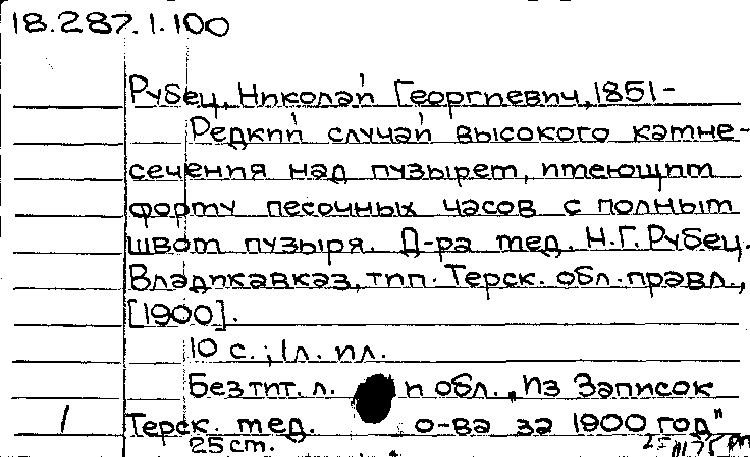 18.287.1.100
Рубец, Николай Георгиевич, 1851-
Редкий случай высокого камне-
сечения над пузырем, имеющим
форму песочных часов с полным
швом пузыря. Д-ра мед. Н.Г. Рубец.
Владикавказ, тип. Терск. обл. правл.,
[1900].
10 с.; 1 л. ил.
Без тит. л. и обл. „Из Записок
1 Терск. мед. о-ва за 1900 год"
25 см.